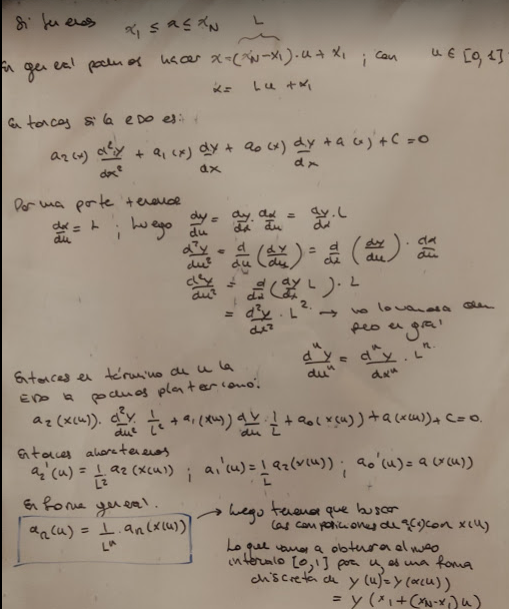 Si tenemos x₁ ≤ x ≤ x_N
L
En general podemos hacer x=(x_N-x₁)·u + x₁ ; con u ∈ [0,1]
x = Lu + x₁
Entonces si la EDO es:
a₂(x) d²y/dx² + a₁(x) dy/dx + a₀(x) dy/dx + a(x) + C = 0
Por una parte tenemos
dx/du = L ; luego dy/du = dy/dx · dx/du = dy/dx · L
d²y/du² = d/du (dy/du) = d/dx (dy/du) · dx/du
d²y/du² = d/dx (dy/dx L) · L
= d²y/dx² · L² → no lo vamos a
pero en gral
dⁿy/duⁿ = dⁿy/dxⁿ · Lⁿ
Entonces en término de u la
EDO la podemos plantear como:
a₂(x(u)) · d²y/du² · 1/L² + a₁(x(u)) dy/du · 1/L + a₀(x(u)) + a(x(u)) + C = 0.
Entonces ahora tenemos
a₂'(u) = 1/L² a₂(x(u)) ; a₁'(u) = 1/L a₂(x(u)) ; a₀'(u) = a(x(u))
En forma general.
aₙ(u) = 1/Lⁿ · aₙ(x(u))
→ Luego tenemos que buscar
las composiciones de con x(u)
Lo que vamos a obtener al
intervalo [0,1] por u, es una forma
discreta de y(u) = y(x(u))
= y(x₁+(x_N-x₁)u)